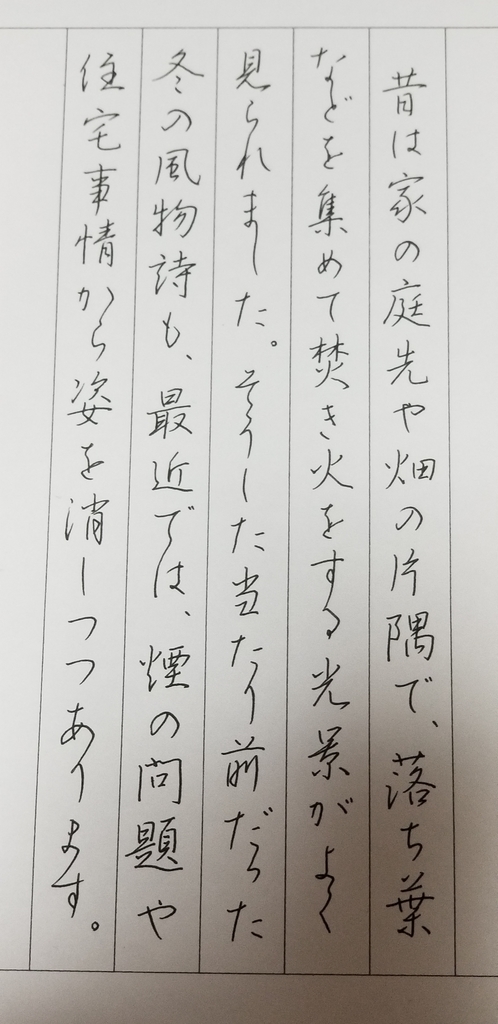 昔は家の庭先や畑の片隅で、落ち葉
などを集めて焚き火をする光景がよく
見られました。そうした当たり前だった
冬の風物詩も、最近では、煙の問題や
住宅事情から姿を消しつつあります。